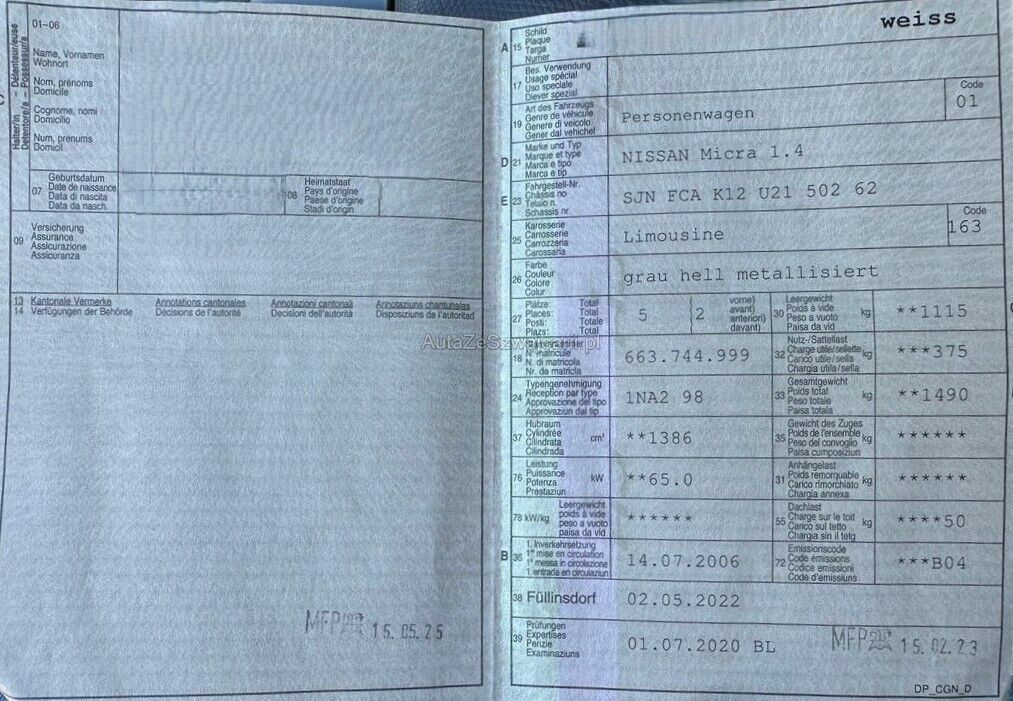 01-06
Halter/in – Détenteur/euse
Detentore/a – Possessur/a
Name, Vornamen
Wohnort
Nom, prénoms
Domicile
Cognome, nomi
Domicilio
Num, prenums
Domicil
07
Geburtsdatum
Date de naissance
Data di nascita
Data da nasch.
08
Heimatstaat
Pays d'origine
Paese d'origine
Stadi d'origin
09
Versicherung
Assurance
Assicurazione
Assicuranza
13 Kantonale Vermerke Annotations cantonales Annotazioni cantonali Annotaziuns chantunalas
14 Verfügungen der Behörde Décisions de l'autorité Decisioni dell'autorità Disposiziuns da l'autoritad
MFP 15.05.25
A 15
Schild
Plaque
Targa
Numer
weiss
17
Bes. Verwendung
Usage spécial
Uso speciale
Diever spezial
19
Art des Fahrzeugs
Genre de véhicule
Genere di veicolo
Gener dal vehichel
Personenwagen
Code
01
D 21
Marke und Typ
Marque et type
Marca e tipo
Marca e tip
NISSAN Micra 1.4
E 23
Fahrgestell-Nr.
Châssis no
Telaio n.
Schassis nr.
SJN FCA K12 U21 502 62
25
Karosserie
Carrosserie
Carrozzeria
Carossaria
Limousine
Code
163
26
Farbe
Couleur
Colore
Colur
grau hell metallisiert
27
Plätze: Total
Places: Total
Posti: Totale
Plazs: Total
5
2
vorne)
avant)
anteriori)
davant)
30
Leergewicht
Poids à vide
Peso a vuoto
Paisa da vid
kg
**1115
AutaZeSzwajcarii.pl
18
Stammnummer
N° matricule
N. di matricola
Nr. da matricla
663.744.999
32
Nutz-/Sattellast
Charge utile/sellette
Carico utile/sella
Chargia utila/sella
kg
***375
24
Typengenehmigung
Réception par type
Approvazione del tipo
Approvaziun dal tip
1NA2 98
33
Gesamtgewicht
Poids total
Peso totale
Paisa totala
kg
**1490
37
Hubraum
Cylindrée
Cilindrata
Cilindrada
cm³
**1386
35
Gewicht des Zuges
Poids de l'ensemble
Peso del convoglio
Paisa cumposiziun
kg
******
76
Leistung
Puissance
Potenza
Prestaziun
kW
**65.0
31
Anhängelast
Poids remorquable
Carico rimorchiato
Chargia annexa
kg
******
78 kW/kg
Leergewicht
poids à vide
peso a vuoto
paisa da vid
******
55
Dachlast
Charge sur le toit
Carico sul tetto
Chargia sin il tetg
kg
****50
B 36
1. Inverkehrsetzung
1re mise en circulation
1a messa in circolazione
1. entrada en circulaziun
14.07.2006
72
Emissionscode
Code émissions
Codice emissioni
Code d'emissiuns
***B04
38 Füllinsdorf
02.05.2022
39
Prüfungen
Expertises
Perizie
Examinaziuns
01.07.2020 BL
MFP 15.02.23
DP_CGN_D